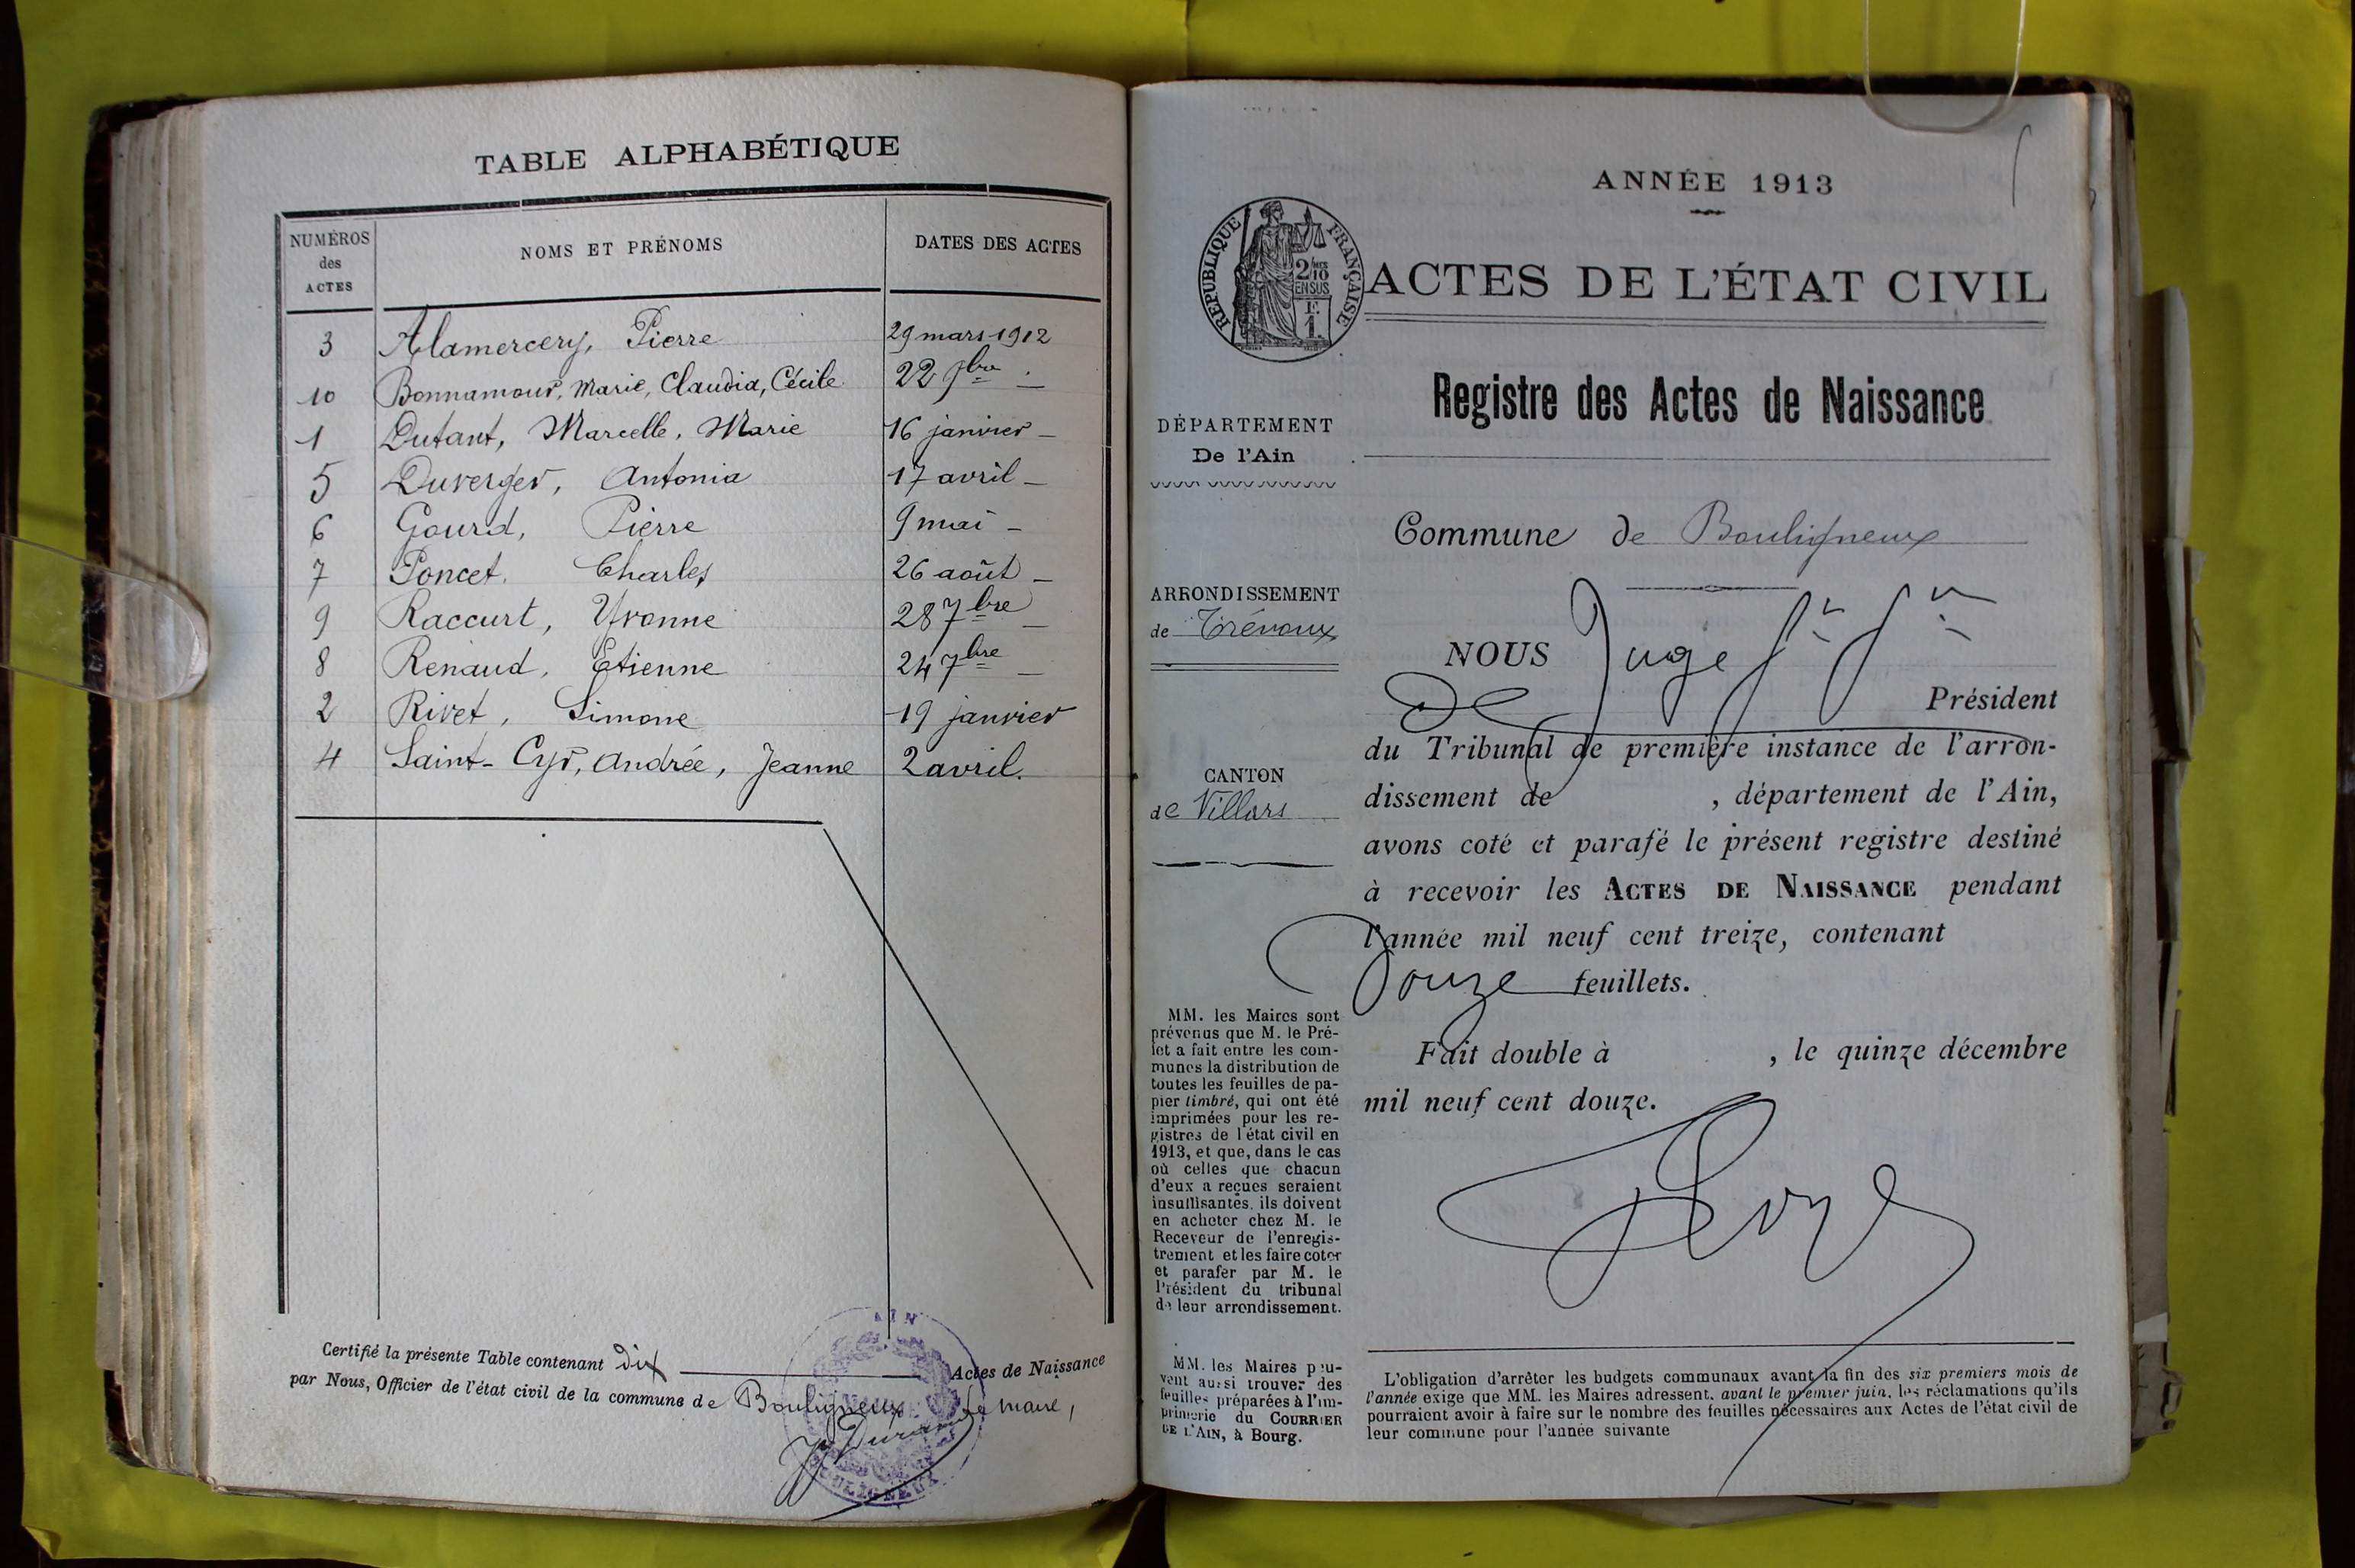 TABLE ALPHABÉTIQUE
NUMÉROS des ACTES
NOMS ET PRÉNOMS
DATES DES ACTES
3 Alamercery, Pierre 29 mars 1912
10 Bonnamour, Marie, Claudia, Cécile 22 9bre —
1 Dutant, Marcelle, Marie 16 janvier —
5 Duverger, Antonia 17 avril —
6 Gourd, Pierre 9 mai —
7 Poncet, Charles 26 août —
9 Raccurt, Yvonne 28 7bre —
8 Renaud, Etienne 24 7bre —
2 Rivet, Simone 19 janvier
4 Saint-Cyr, Andrée, Jeanne 2 avril.
Certifié la présente Table contenant dix Actes de Naissance
par Nous, Officier de l'état civil de la commune de Bouligneux Le maire,
AIN
BOULIGNEUX
ANNÉE 1913
RÉPUBLIQUE FRANÇAISE
2/10 EN SUS
1 F.
ACTES DE L'ÉTAT CIVIL
Registre des Actes de Naissance
DÉPARTEMENT
De l'Ain
Commune de Bouligneux
ARRONDISSEMENT
de Trévoux
CANTON
de Villars
NOUS Juge
Président
du Tribunal de première instance de l'arron-
dissement de , département de l'Ain,
avons coté et parafé le présent registre destiné
à recevoir les ACTES DE NAISSANCE pendant
l'année mil neuf cent treize, contenant
Douze feuillets.
Fait double à , le quinze décembre
mil neuf cent douze.
MM. les Maires sont
prévenus que M. le Pré-
fet a fait entre les com-
munes la distribution de
toutes les feuilles de pa-
pier timbré, qui ont été
imprimées pour les re-
gistres de l'état civil en
1913, et que, dans le cas
où celles que chacun
d'eux a reçues seraient
insuffisantes, ils doivent
en acheter chez M. le
Receveur de l'enregis-
trement et les faire coter
et parafer par M. le
Président du tribunal
de leur arrondissement.
MM. les Maires peu-
vent aussi trouver des
feuilles préparées à l'im-
primerie du COURRIER
DE L'AIN, à Bourg.
L'obligation d'arrêter les budgets communaux avant la fin des six premiers mois de
l'année exige que MM. les Maires adressent, avant le premier juin, les réclamations qu'ils
pourraient avoir à faire sur le nombre des feuilles nécessaires aux Actes de l'état civil de
leur commune pour l'année suivante